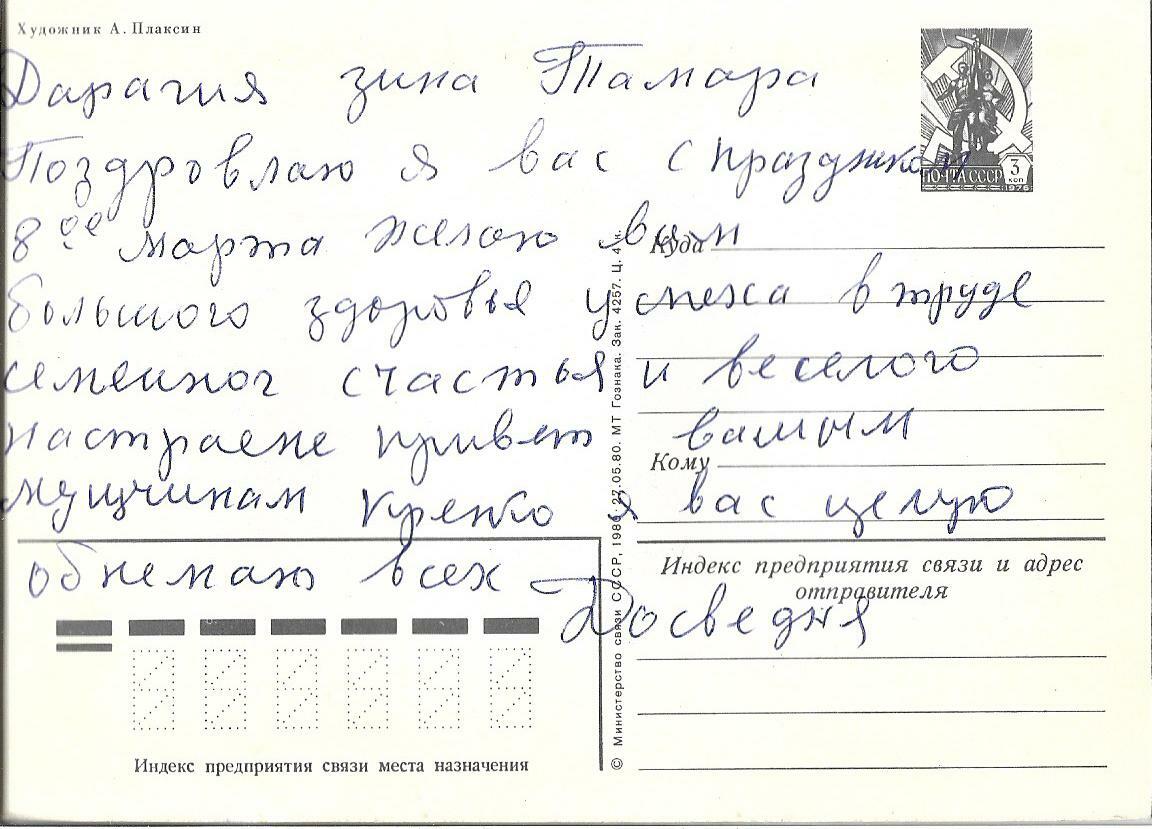 Художник А. Плаксин
Дарагия зина Тамара
Поздровлаю я вас с праздником
ПОЧТА СССР
3
коп
1976
8 ое марта желаю вам
Куда
большого здоровья успеха в труде
семейног счастья и веселого
настраене привет вашым
Кому
мущчинам крепко я вас целую
обнемаю всех Досведня
Индекс предприятия связи и адрес
отправителя
Индекс предприятия связи места назначения
© Министерство связи СССР, 1980. 27.05.80. МТ Гознака. Зак. 4257. Ц. 4 к.